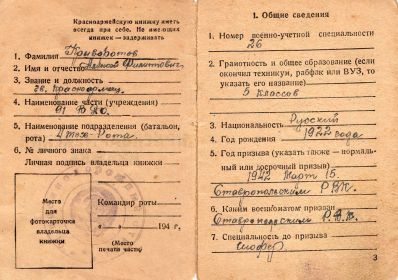 Красноармейскую книжку иметь
всегда при себе. Не имеющих
книжек — задерживать
1. Фамилия
2. Имя и отчество Филиппович
3. Звание и должность
гв. Красноармеец
4. Наименование части (учреждения)
91
5. Наименование подразделения (батальон,
рота) 4 Рота
6. № личного знака
Личная подпись владельца книжки
Место
для
фотокарточки
владельца
книжки
Командир роты
194 г.
(Место
печати части)
I. Общие сведения
1. Номер военно-учетной специальности
26
2. Грамотность и общее образование (если
окончил техникум, рабфак или ВУЗ, то
указать его название)
5 классов
3. Национальность Русский
4. Год рождения 1922 года
5. Год призыва (указать также — нормаль-
ный или досрочный призыв)
1942 Март 15.
Ставропольским Р.В.К.
6. Каким военкоматом призван
Ставропольским Р.В.К.
7. Специальность до призыва
Шофер
3